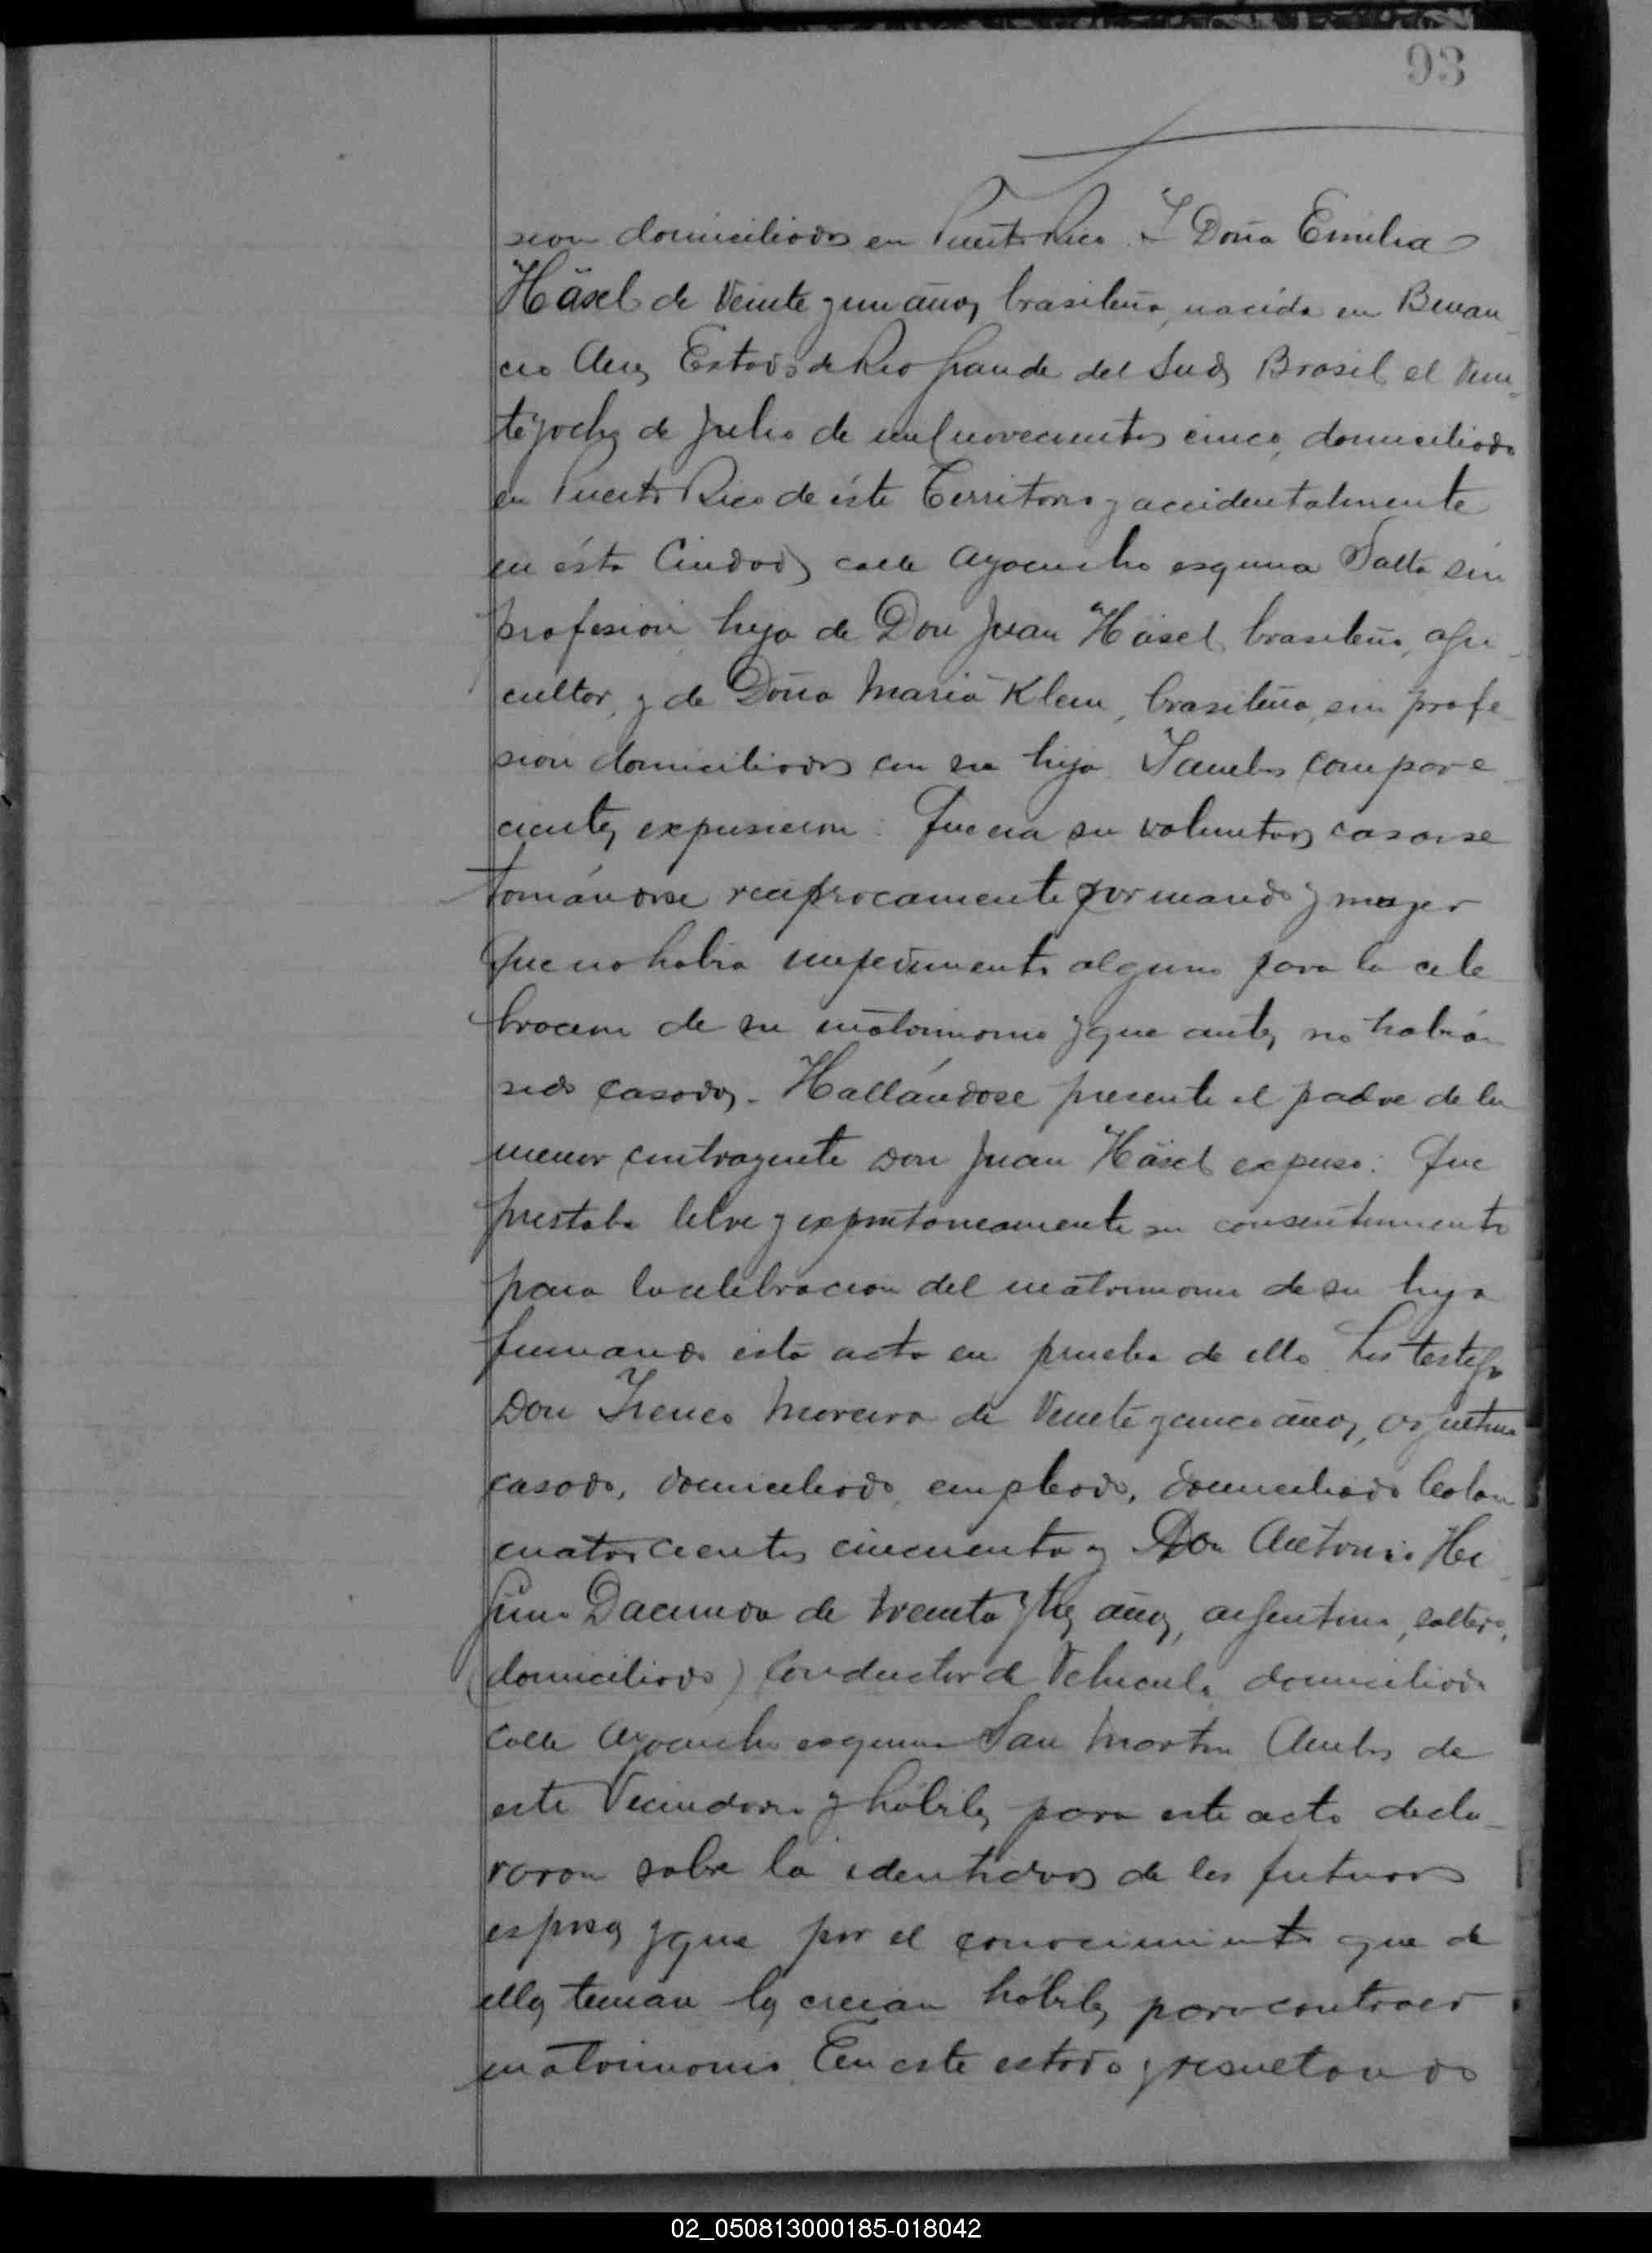 93
sion domiciliados en Puerto Rico. Y Doña Emilia
Häsel de veinte y un años, brasileña, nacida en Benan-
cio Aires Estado de Rio Grande del Sud, Brasil el vein-
tiyocho de Julio de mil novecientos cinco, domiciliada
en Puerto Rico de éste Territorio y accidentalmente
en ésta Ciudad, calle Ayacucho esquina Salta sin
profesion, hija de Don Juan Häsel, brasileño, agri-
cultor, y de Doña Maria Klein, brasileña, sin profe-
sion domiciliados con su hija. Y ambos compare-
cientes expusieron: Que era su voluntad casarse
tomándose reciprocamente por marido y mujer
Que no habia impedimento alguno para la cele-
bracion de su matrimonio y que antes no habian
sido casados. Hallándose presente el padre de la
menor contrayente Don Juan Häsel expuso: Que
prestaba libre y expontaneamente su consentimiento
para la celebracion del matrimonio de su hija
firmando esta acta en prueba de ello. Los testigos
Don Ireneo Moreira de veinte y cinco años, argentino
casado, domiciliado, empleado, domiciliado Colon
cuatrocientos cincuenta y Don Antonio He
Dacunda de treinta y tres años, argentino, soltero,
(domiciliado) conductor de Vehiculo, domiciliado
calle Ayacucho esquina San Martin Ambos de
este Vecindario y hábiles para este acto decla-
raron sobre la identidad de los futuros
esposos y que por el conocimiento que de
ellos tenian los creian hábiles para contraer
matrimonio. En este estado y resultando
02_050813000185-018042